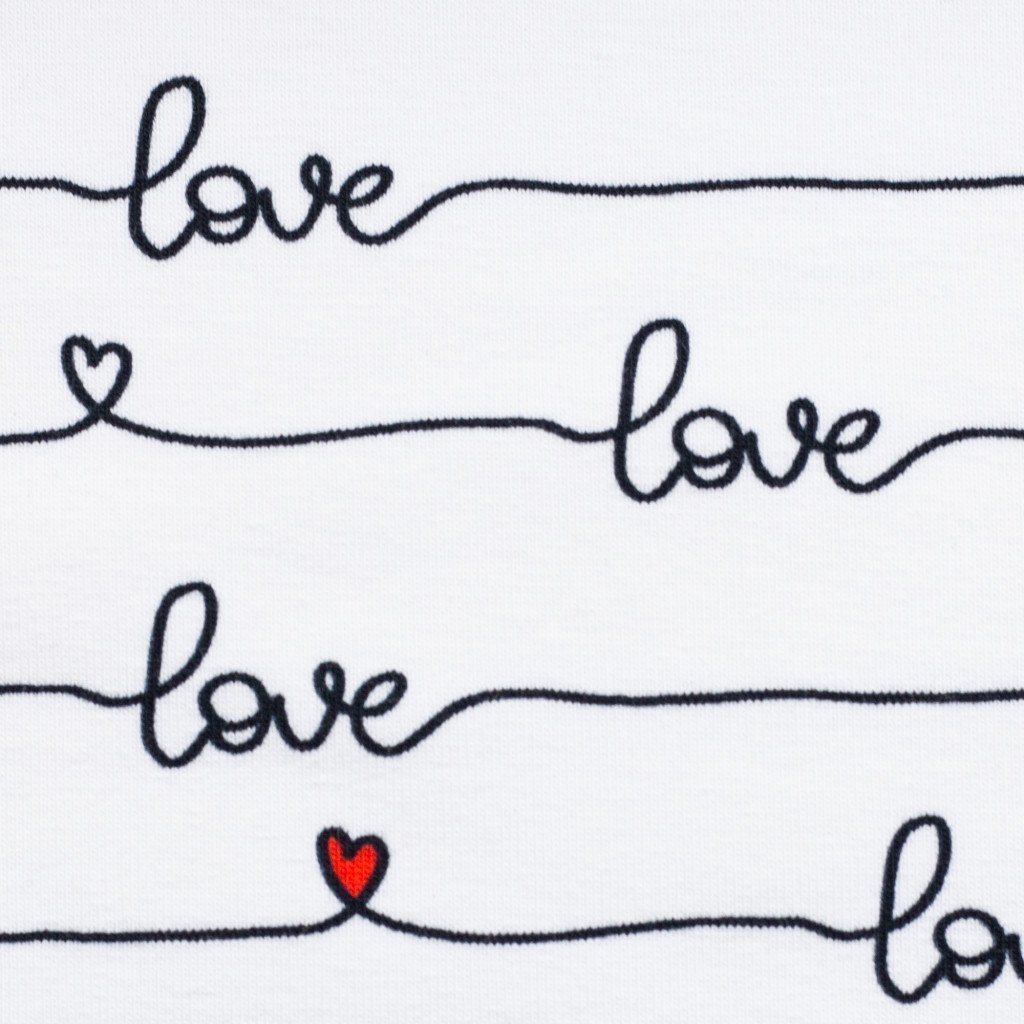 love
love
love
lov